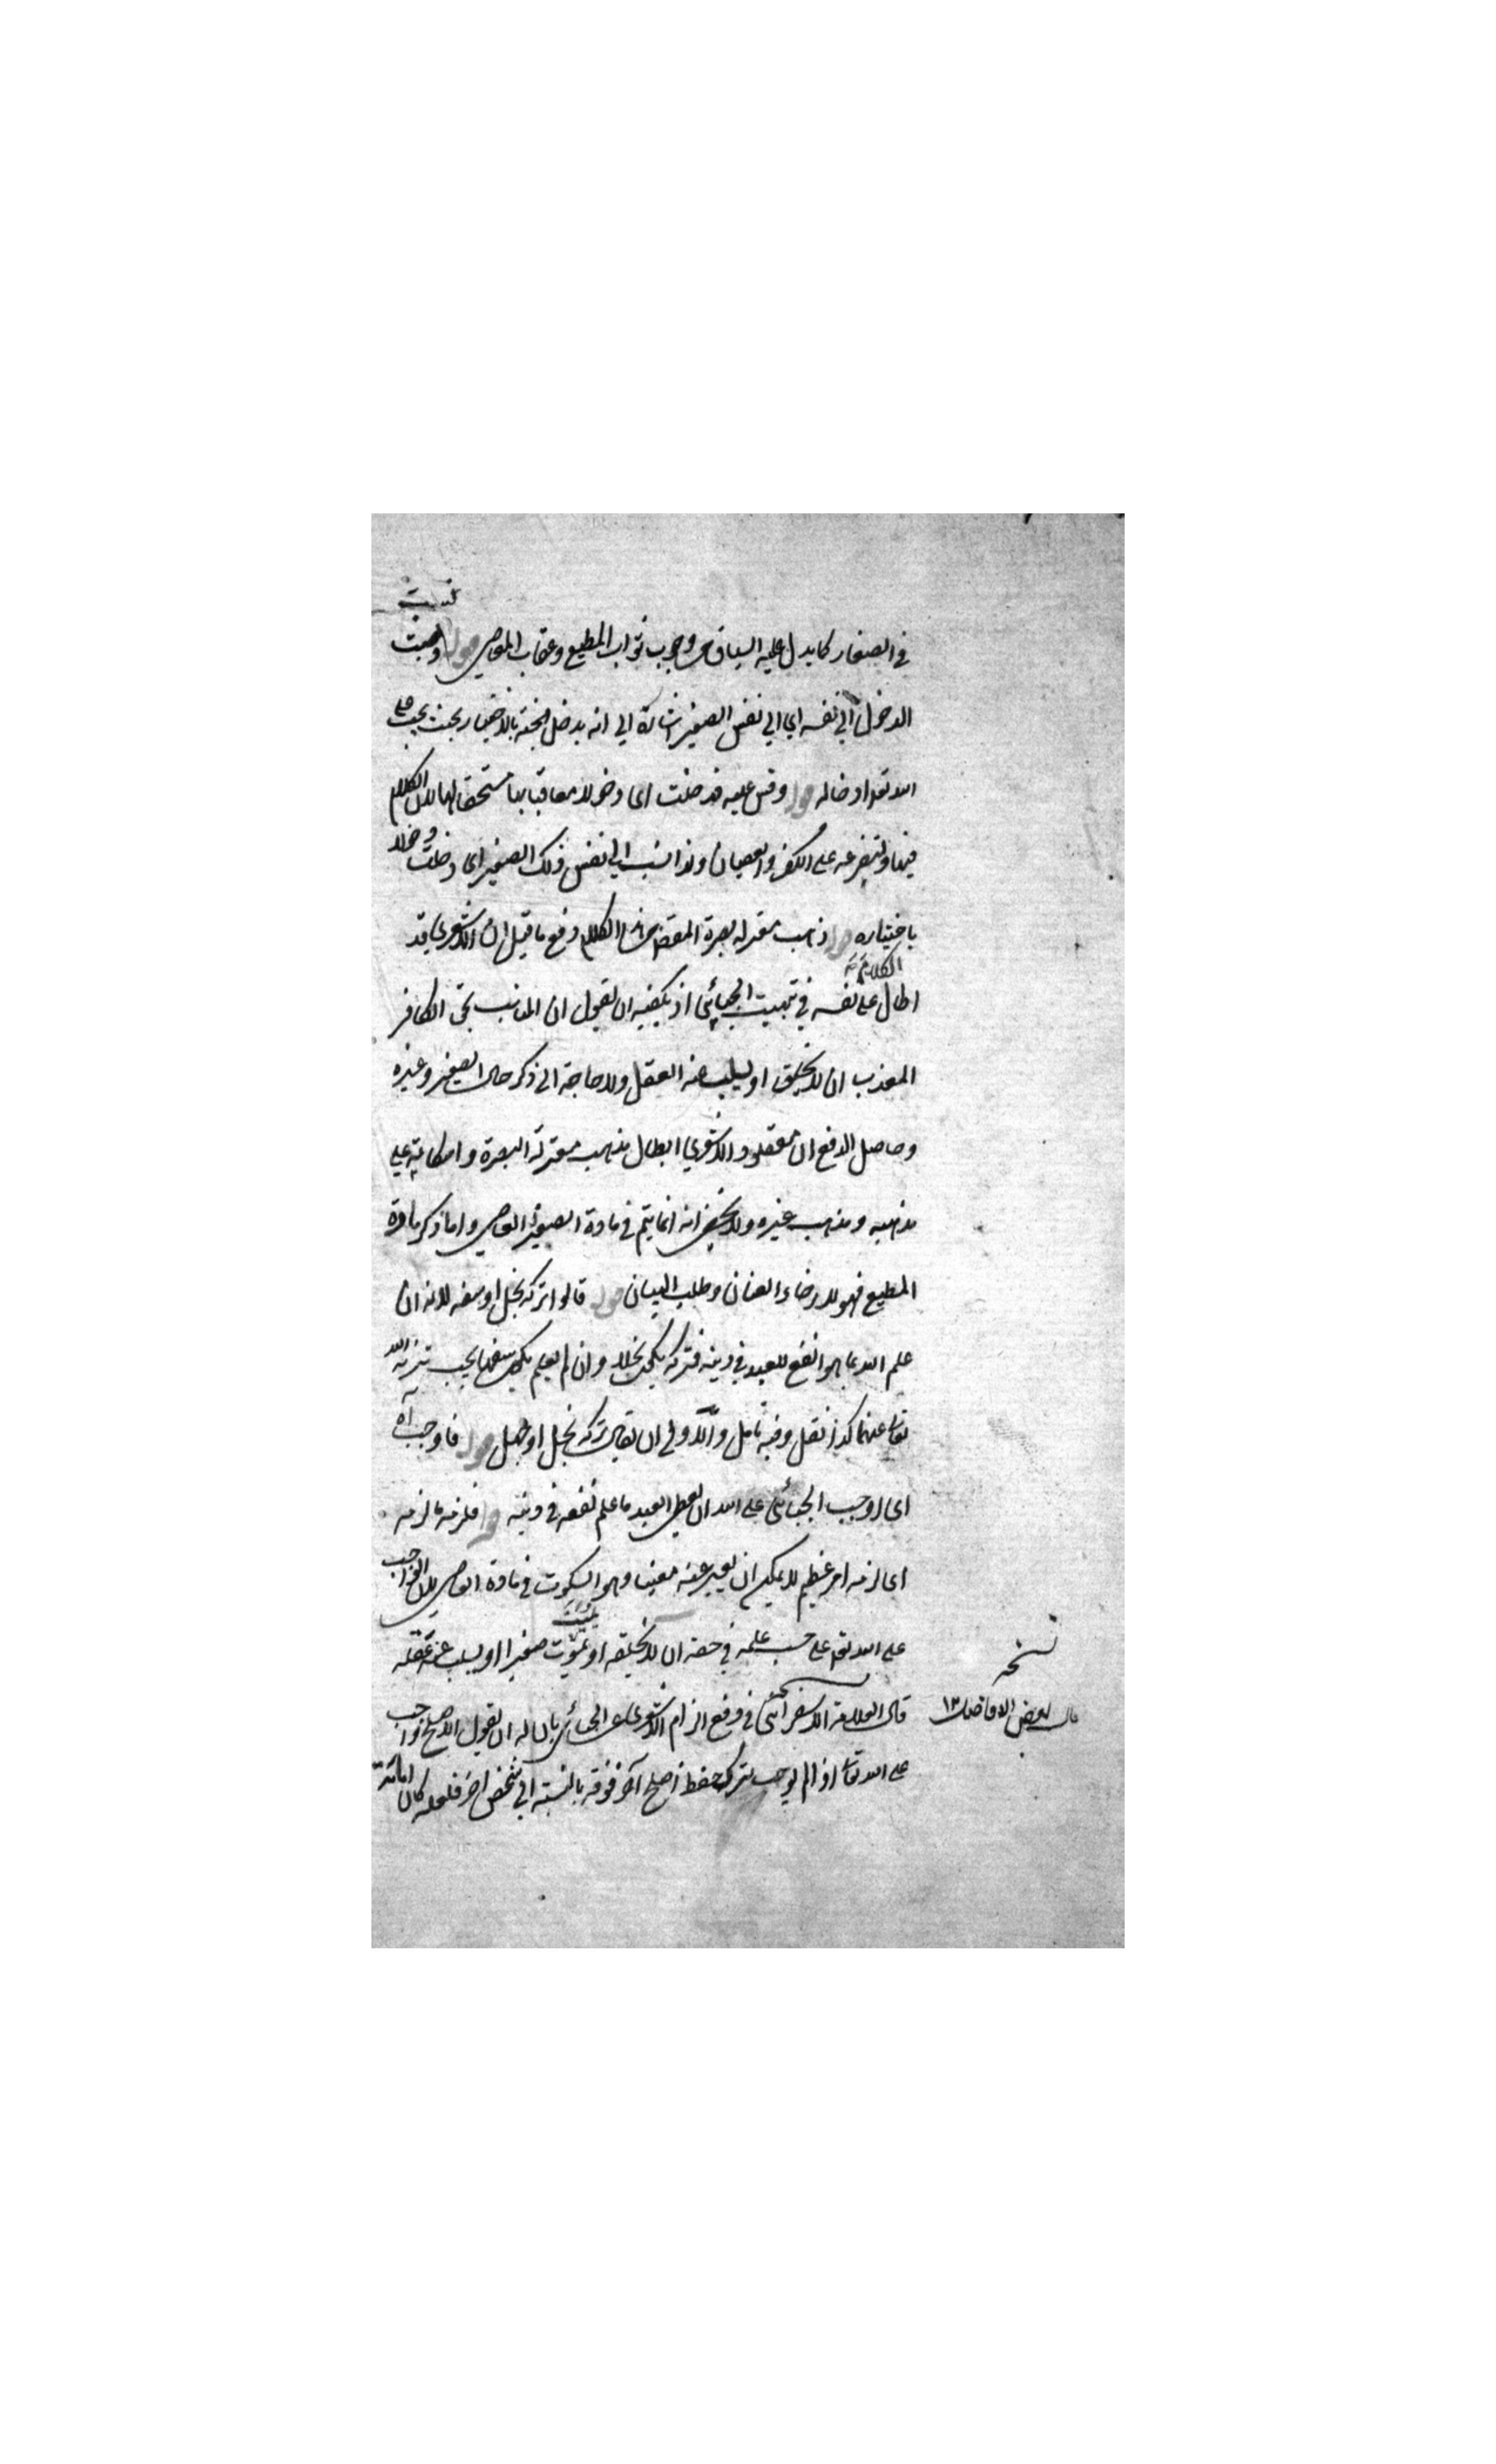 نسبت
في الصغار كما يدل عليه السياق من وجوب ثواب المطيع وعقاب العاصي قوله
الدخول الي نفسه اي الي نفس الصغير اشارة الي انه يدخل الجنة بالاختيار بحيث يجب على
الله تعه ادخاله قوله وقس عليه فدخلت اى دخولا معاقبا بها مستحقا لها لان الكلام
فيها ولتفرعه على الكفر والعصيان ولذا نسب الي نفس ذلك الصغير اى دخلت دخولا
باختياره قوله ذهب معتزلة بصرة المقصد من هذا الكلام دفع ما قيل ان الاشعرى قد
الكلام
اطال على نفسه في تبهيت الجبائي اذ يكفيه ان يقول ان المناسب بحق الكافر
المعذب ان لا يخلق او يسلب عنه العقل ولا حاجة الى ذكر حال الصغير وغيره
وحاصل الدفع ان مقصود الاشعري ابطال مذهب معتزلة البصرة واسكاته على
مذهبه ومذهب غيره ولا يخفى انه انما يتم في مادة الصغير العاصي واما ذكر مادة
المطيع فهو لارخاء العنان وطلب البيان قوله قالوا تركه بخل او سفه لانه ان
علم الله بما هو انفع للعبد في دينه فتركه يكون بخلا وان لم يعلم يكون سفها يجب تنزيه الله
تعالى عنهما كذا نقل وفيه تأمل والاولى ان يقال تركه بخل او جهل قوله فاوجب آه
اى اوجب الجبائي على الله ان يعطى العبد ما علم نفعه في دينه قوله فلزمه ما لزمه
اى لزمه امر عظيم لا يمكن ان يعبر عنه معينا وهو السكوت في مادة العاصي لان الواجب
يميت
على الله تعه على حسب علمه في حقه ان لا يخلقه او يموت صغيرا او يسلب عنه عقله
نسخه
قال بعض الافاضل ١٢
قال العلامة الاسفرائني في دفع الزام الاشعرى على الجبائي بان له ان يقول الاصلح واجب
على الله تعالى اذا لم يوجب ترك حفظ اصلح آخر فوقه بالنسبة الي شخص آخر فلعله كان اماتة